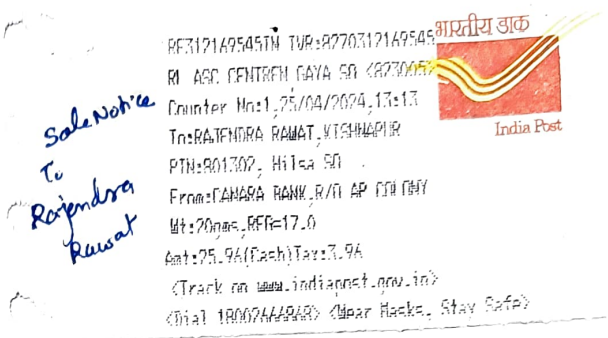 भारतीय डाक
India Post
RF312169545IN IVR:8270312169545
RL ASC CENTREN GAYA SO <823005>
Counter No:1,25/04/2024,13:13
To:RAJENDRA RAWAT,KISHNAPUR
PIN:801302, Hilsa SO
From:CANARA BANK,R/O AP COLONY
Wt:20gms,REG=17.0
Amt:25.96(Cash)Tax:3.96
<Track on www.indiapost.gov.in>
<Dial 18002666868> <Wear Masks, Stay Safe>
Sale Notice
To
Rajendra
Rawat